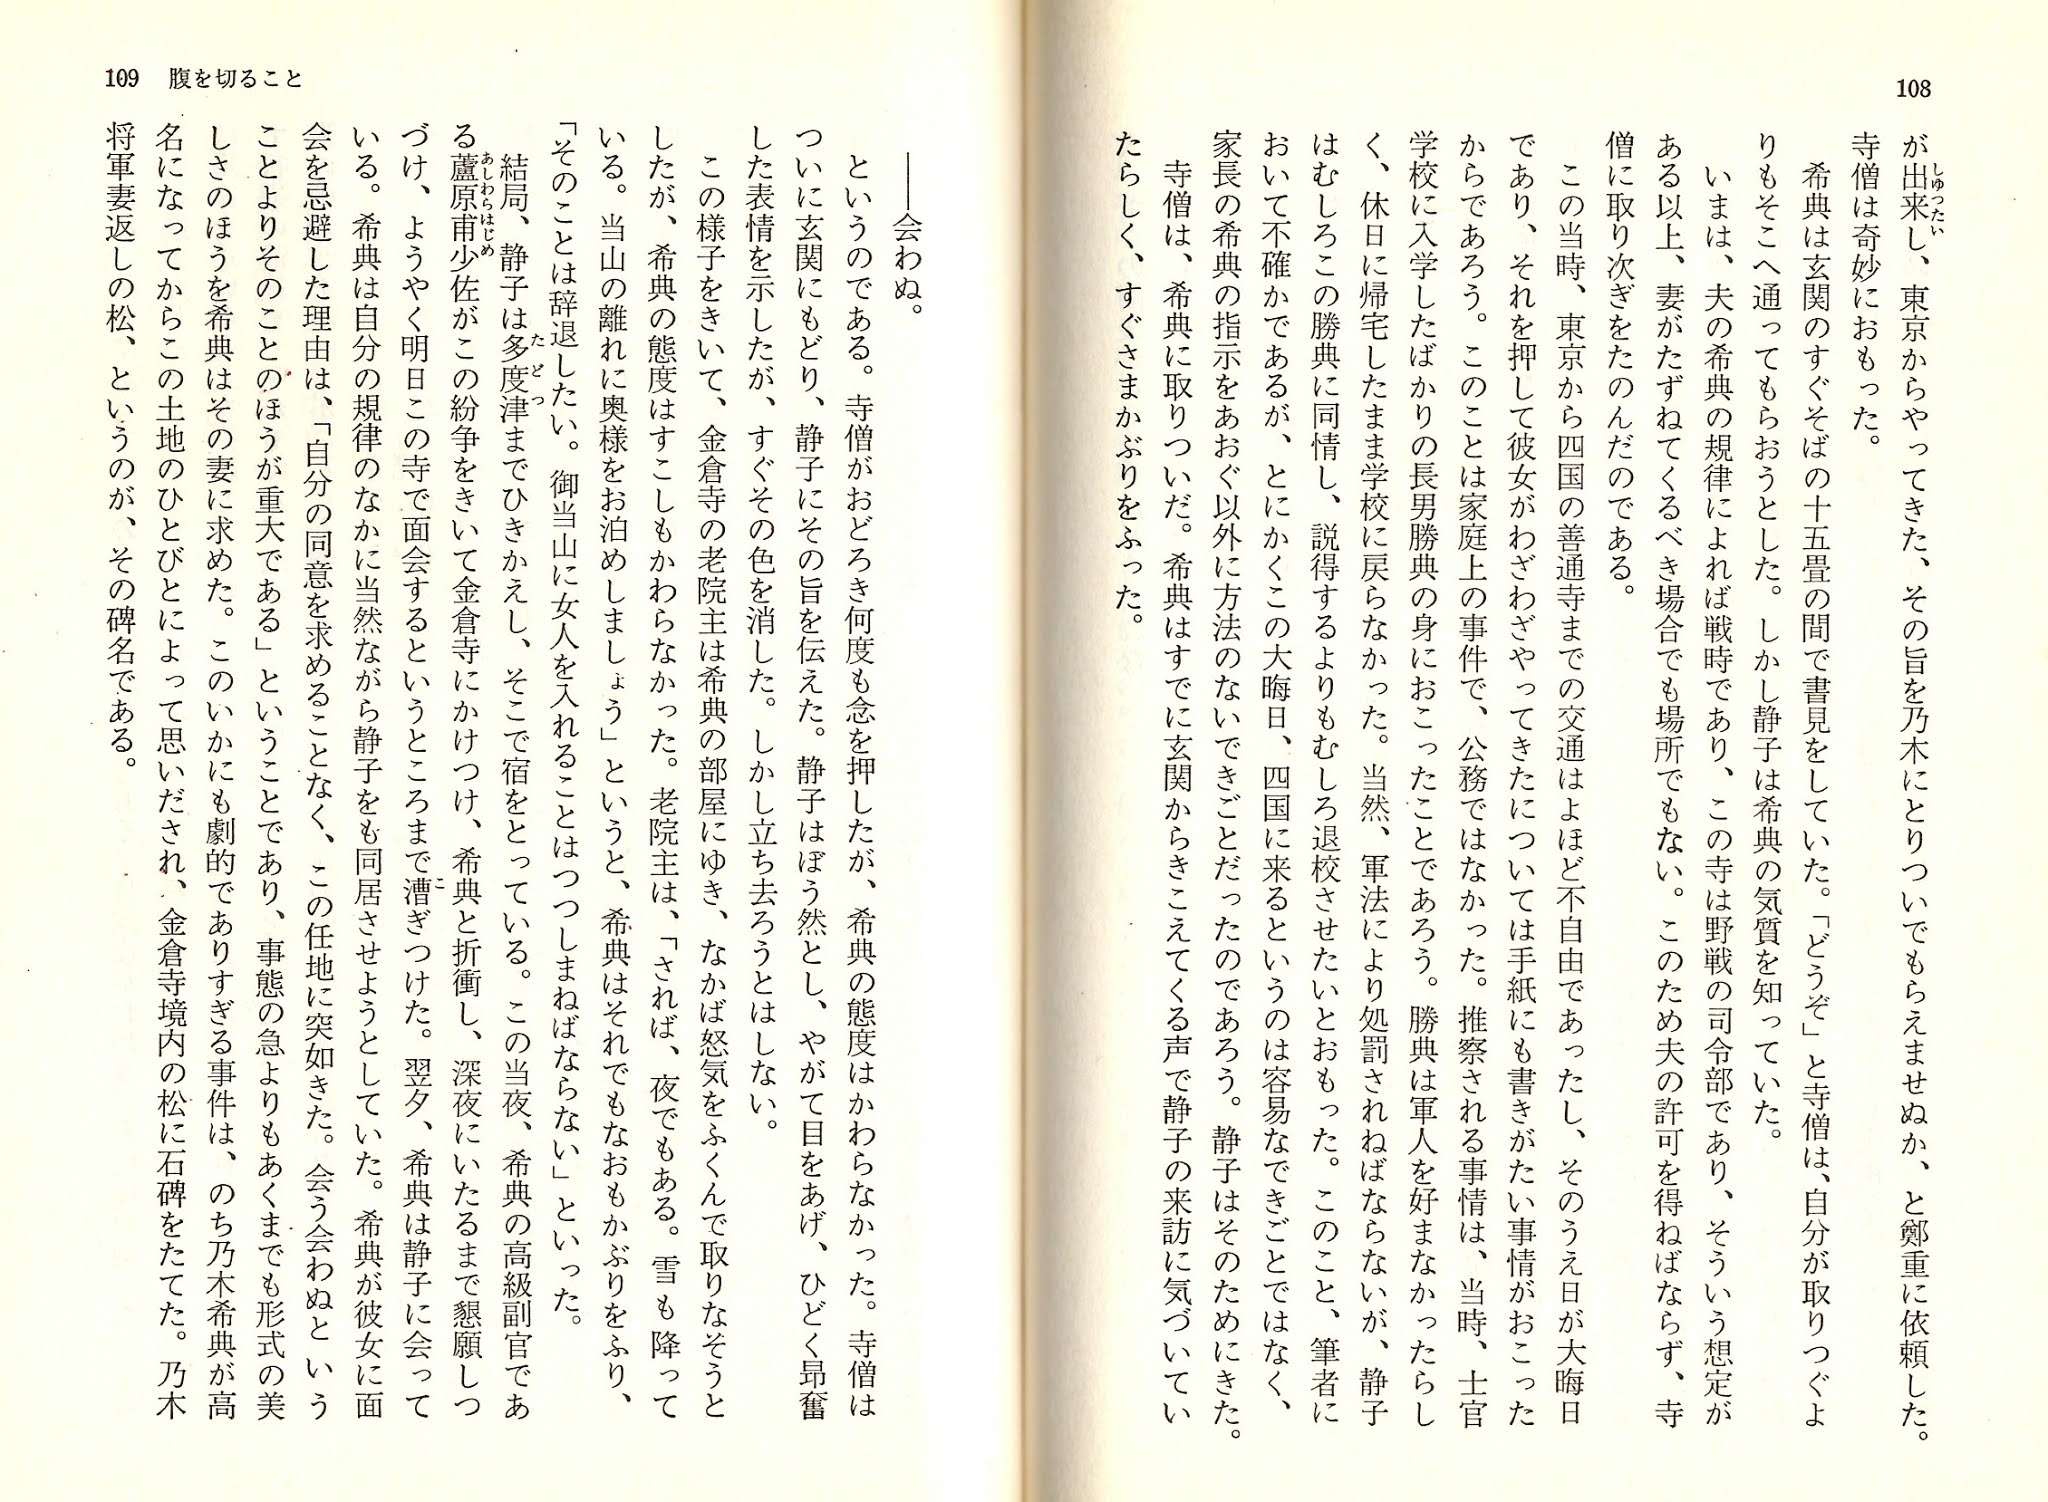 108
が出来し、東京からやってきた、その旨を乃木にとりついでもらえませぬか、と鄭重に依頼した。
しゅったい
寺僧は奇妙におもった。
希典は玄関のすぐそばの十五畳の間で書見をしていた。「どうぞ」と寺僧は、自分が取りつぐよ
りもそこへ通ってもらおうとした。しかし静子は希典の気質を知っていた。
いまは、夫の希典の規律によれば戦時であり、この寺は野戦の司令部であり、そういう想定が
ある以上、妻がたずねてくるべき場合でも場所でもない。このため夫の許可を得ねばならず、寺
僧に取り次ぎをたのんだのである。
この当時、東京から四国の善通寺までの交通はよほど不自由であったし、そのうえ日が大晦日
であり、それを押して彼女がわざわざやってきたについては手紙にも書きがたい事情がおこった
からであろう。このことは家庭上の事件で、公務ではなかった。推察される事情は、当時、士官
学校に入学したばかりの長男勝典の身におこったことであろう。勝典は軍人を好まなかったらし
く、休日に帰宅したまま学校に戻らなかった。当然、軍法により処罰されねばならないが、静子
はむしろこの勝典に同情し、説得するよりもむしろ退校させたいとおもった。このこと、筆者に
おいて不確かであるが、とにかくこの大晦日、四国に来るというのは容易なできごとではなく、
家長の希典の指示をあおぐ以外に方法のないできごとだったのであろう。静子はそのためにきた。
寺僧は、希典に取りついだ。希典はすでに玄関からきこえてくる声で静子の来訪に気づいてい
たらしく、すぐさまかぶりをふった。
109 腹を切ること
――会わぬ。
というのである。寺僧がおどろき何度も念を押したが、希典の態度はかわらなかった。寺僧は
ついに玄関にもどり、静子にその旨を伝えた。静子はぼう然とし、やがて目をあげ、ひどく昂奮
した表情を示したが、すぐその色を消した。しかし立ち去ろうとはしない。
この様子をきいて、金倉寺の老院主は希典の部屋にゆき、なかば怒気をふくんで取りなそうと
したが、希典の態度はすこしもかわらなかった。老院主は、「されば、夜でもある。雪も降って
いる。当山の離れに奥様をお泊めしましょう」というと、希典はそれでもなおもかぶりをふり、
「そのことは辞退したい。御当山に女人を入れることはつつしまねばならない」といった。
結局、静子は多度津までひきかえし、そこで宿をとっている。この当夜、希典の高級副官であ
たどつ
る蘆原甫少佐がこの紛争をきいて金倉寺にかけつけ、希典と折衝し、深夜にいたるまで懇願しつ
あしわらはじめ
づけ、ようやく明日この寺で面会するというところまで漕ぎつけた。翌夕、希典は静子に会って
こ
いる。希典は自分の規律のなかに当然ながら静子をも同居させようとしていた。希典が彼女に面
会を忌避した理由は、「自分の同意を求めることなく、この任地に突如きた。会う会わぬという
ことよりそのことのほうが重大である」ということであり、事態の急よりもあくまでも形式の美
しさのほうを希典はその妻に求めた。このいかにも劇的でありすぎる事件は、のち乃木希典が高
名になってからこの土地のひとびとによって思いだされ、金倉寺境内の松に石碑をたてた。乃木
将軍妻返しの松、というのが、その碑名である。